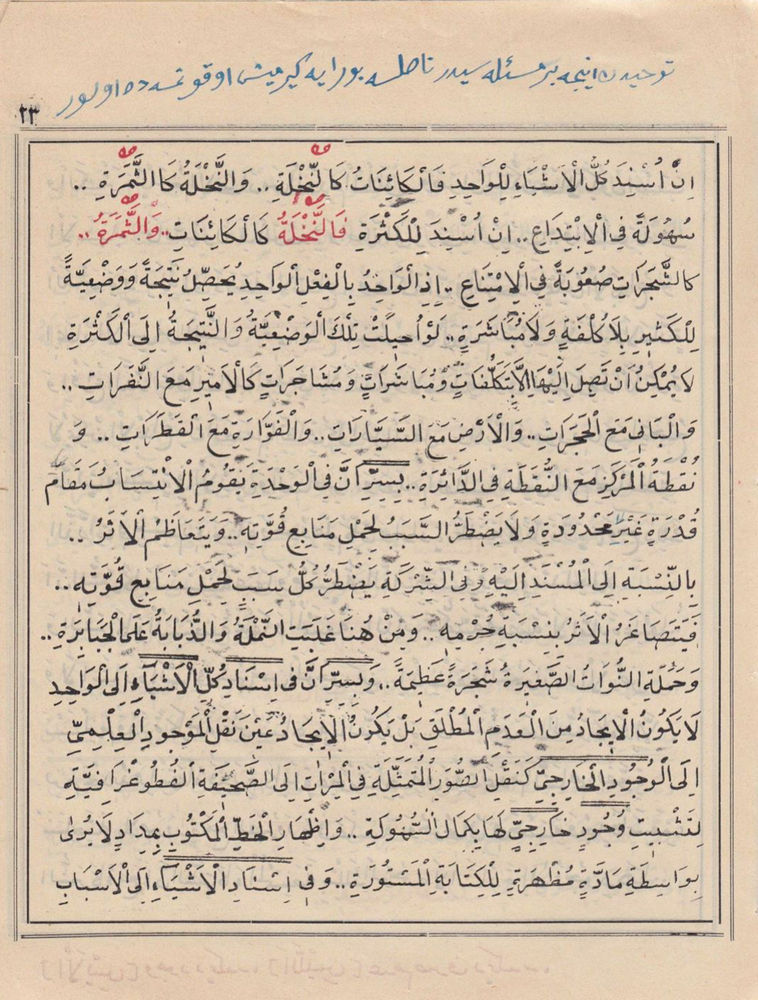 توحيدن اينجه بر مسئله سيدر ناصلسه بورايه كيرميش اوقونمسه ده اولور
٢٣
اِنْ اُسْنِدَ كُلُّ الْاَشْيَاءِ لِلْوَاحِدِ فَالْكَائِنَاتُ كَالنَّخْلَةِ .. وَالنَّخْلَةُ كَالثَّمَرَةِ ..
سُهُولَةً فِى الْاِبْتِدَاعِ .. اِنْ اُسْنِدَ لِلْكَثْرَةِ فَالنَّخْلَةُ كَالْكَائِنَاتِ .. وَالثَّمَرَةُ ..
كَالشَّجَرَاتِ صُعُوبَةً فِى الْاِمْتِنَاعِ .. اِذِ الْوَاحِدُ بِالْفِعْلِ الْوَاحِدِ يُحَصِّلُ نَتِيجَةً وَوَضْعِيَّةً
لِلْكَثِيرِ بِلَا كُلْفَةٍ وَلَا مُبَاشَرَةٍ .. لَوْ اُحِيلَتْ تِلْكَ الْوَضْعِيَّةُ وَالنَّتِيجَةُ اِلَى الْكَثْرَةِ
لَا يُمْكِنُ اَنْ تَصِلَ اِلَيْهَا اِلَّا بِتَكَلُّفَاتٍ وَمُبَاشَرَاتٍ وَمُشَاجَرَاتٍ كَالْاَمِيرِ مَعَ النَّفَرَاتِ ..
وَالْبَانِى مَعَ الْحَجَرَاتِ .. وَالْاَرْضِ مَعَ السَّيَّارَاتِ .. وَالْفَوَّارَةِ مَعَ الْقَطَرَاتِ .. وَ
نُقْطَةُ الْمَرْكَزِ مَعَ النُّقَطَةِ فِى الدَّائِرَةِ .. بِسِرِّ اَنَّ فِى الْوَحْدَةِ يَقُومُ الْاِنْتِسَابُ مَقَامَ
قُدْرَةٍ غَيْرِ مَحْدُودَةٍ وَلَا يَضْطَرُّ السَّبَبُ لِحَمْلِ مَنَابِعِ قُوَّتِهِ .. وَيَتَعَاظَمُ الْاَثَرُ ..
بِالنِّسْبَةِ اِلَى الْمُسْنَدِ اِلَيْهِ وَفِى الشِّرْكَةِ يَضْطَرُّ كُلُّ سَبَبٍ لِحَمْلِ مَنَابِعِ قُوَّتِهِ ..
فَيَتَصَاغَرُ الْاَثَرُ بِنِسْبَةِ جُرْمِهِ .. وَمِنْ هُنَا غَلَبَتِ النَّمْلَةُ وَالذُّبَابَةُ عَلَى الْجَبَابِرَةِ ..
وَحَمَلَةِ النُّوَاتُ الصَّغِيرَةُ شَجَرَةً عَظِيمَةً .. وَبِسِرِّ اَنَّ فِى اِسْنَادِ كُلِّ الْاَشْيَاءِ اِلَى الْوَاحِدِ
لَا يَكُونُ الْاِيجَادُ مِنَ الْعَدَمِ الْمُطْلَقِ بَلْ يَكُونُ الْاِيجَادُ عَيْنَ نَقْلِ الْمَوْجُودِ الْعِلْمِىِّ
اِلَى الْوُجُودِ الْخَارِجِىِّ كَنَقْلِ الصُّوَرِ الْمُتَمَثِّلَةِ فِى الْمِرْاٰتِ اِلَى الصَّحِيفَةِ الْفُطُوغْرَافِيَّةِ
لِتَثْبِيتِ وُجُودٍ خَارِجِىٍّ لَهَا بِكَمَالِ السُّهُولَةِ .. وَاِظْهَارِ الْخَطِّ الْمَكْتُوبِ بِمِدَادٍ لَا يُرٰى
بِوَاسِطَةِ مَادَّةٍ مُظْهِرَةٍ لِلْكِتَابَةِ الْمَسْتُورَةِ .. وَفِى اِسْنَادِ الْاَشْيَاءِ اِلَى الْاَسْبَابِ